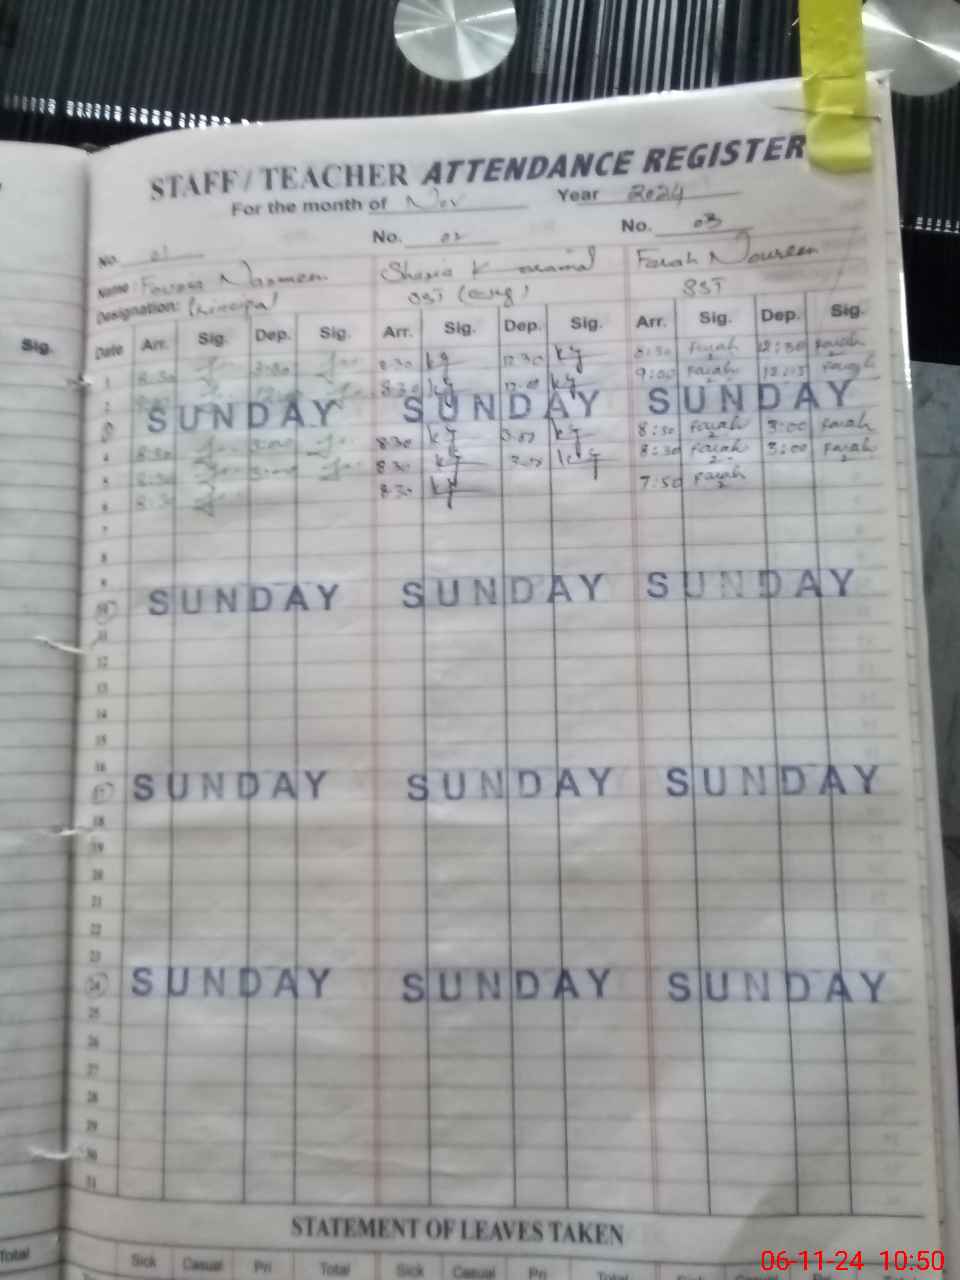 STAFF / TEACHER ATTENDANCE REGISTER
For the month of Nov Year 2024
No. 01 No. 02 No. 03
Name: Farah Noureen
Designation: Principal SST (Eng) SST
Sig. Date Arr. Sig. Dep. Sig. Arr. Sig. Dep. Sig. Arr. Sig. Dep. Sig.
1 8:30 8:30 kg 12:30 kg 8:30 Farah 12:30 Farah
2 8:30 kg 12:00 kg 9:00 Farah 12:15 Farah
3 SUNDAY SUNDAY SUNDAY
4 8:30 3:00 8:30 kg kg 8:30 Farah 3:00 Farah
5 8:30 3:00 8:30 kg kg 8:30 Farah 3:00 Farah
6 8:30 8:30 kg 7:50 Farah
7
8
9
10 SUNDAY SUNDAY SUNDAY
11
12
13
14
15
16
17 SUNDAY SUNDAY SUNDAY
18
19
20
21
22
23
24 SUNDAY SUNDAY SUNDAY
25
26
27
28
29
30
31
STATEMENT OF LEAVES TAKEN
Total Sick Casual Pri Total Sick Casual Pri Total Sick Casual Pri
06-11-24 10:50